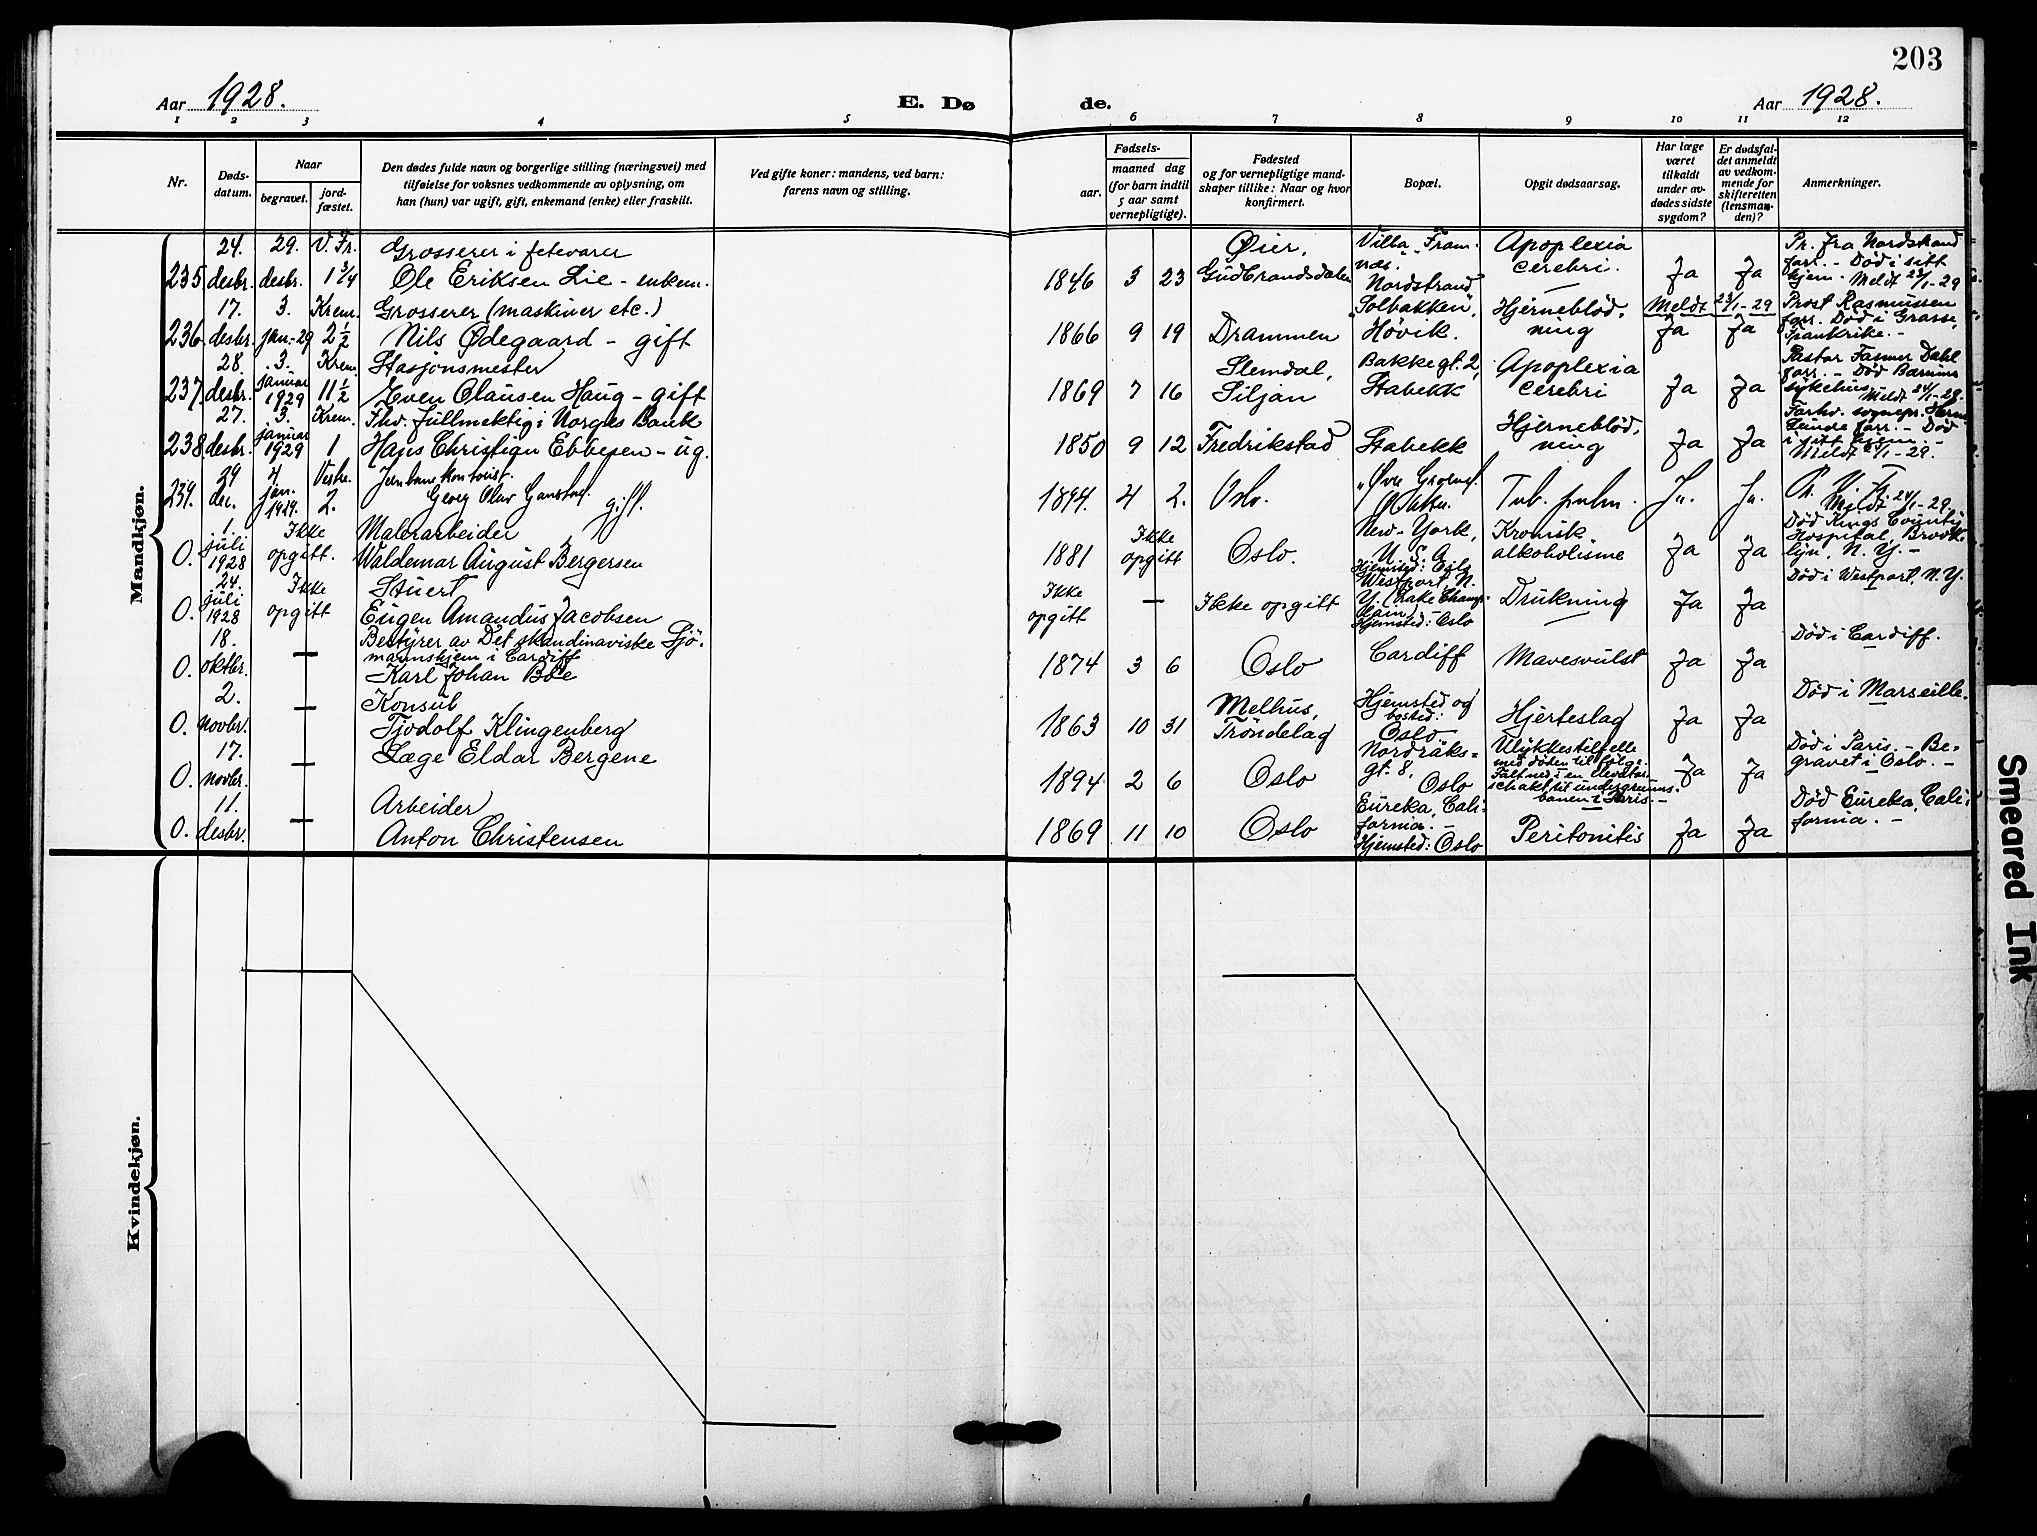 203
Aar 1928.
E. Dø
de.
Aar 1928.
1 2 3 4 5 6 7 8 9 10 11 12
Nr.
Døds-
datum.
Naar
begravet.
jord-
fæstet.
Den dødes fulde navn og borgerlige stilling (næringsvei) med
tilføielse for voksnes vedkommende av oplysning, om
han (hun) var ugift, gift, enkemand (enke) eller fraskilt.
Ved gifte koner: mandens, ved barn:
farens navn og stilling.
Fødsels-
aar.
maaned dag
(for barn indtil
5 aar samt
vernepligtige).
Fødested
og for vernepligtige mand-
skaper tillike: Naar og hvor
konfirmert.
Bopæl.
Opgit dødsaarsag.
Har læge
været
tilkaldt
under av-
dødes sidste
sygdom?
Er dødsfal-
det anmeldt
av vedkom-
mende for
skifteretten
(lensman-
den)?
Anmerkninger.
Mandkjøn.
235 24. desbr. 29. desbr. V. Fr. 1 3/4
Grosserer i fetevarer
Ole Eriksen Lie - enkem.
1846 3 23
Øier,
Gudbrandsdalen
Villa "Fram-
næs".
Nordstrand
Apoplexia
cerebri.
Ja Ja
Pr. fra Nordstrand
forr. - Død i sitt
hjem. Meldt 23/1-29
236 17. desbr. 3. jan.-29 Krem. 2 1/2
Grosserer (maskiner etc.)
Nils Ødegaard - gift
1866 9 19
Drammen
"Solbakken",
Høvik.
Hjerneblød-
ning
Meldt 23/1-29
Ja Ja
Prost Rasmussen
forr. Død i Grasse,
Frankrike. -
237 28. desbr. 3. januar 1929 Krem. 11 1/2
Stasjonsmester
Even Olausen Haug - gift
1869 7 16
Slemdal,
Siljan
Bakkegt. 2,
Stabekk
Apoplexia
cerebri
Ja Ja
Pastor Fasmer Dahl
forr. - Død Bærums
sykehus
Meldt 24/1-29.
238 27. desbr. 3. januar 1929 Krem. 1
Fhv. fullmektig i Norges Bank
Hans Christian Ebbesen - ug.
1850 9 12
Fredrikstad
Stabekk
Hjerneblød-
ning
Ja Ja
forr. - Død
i sitt hjem. -
Meldt 24/1-29.
239. 29 dec. 4 jan. 1929. Vestre. 2.
Jernbanekontorist.
Georg Olav
gift.
1894. 4 2.
Oslo.
Tub. pulm.
Ja. Ja.
Meldt 24/1-29
0. 1. juli 1928 Ikke opgitt.
Malerarbeider
Waldemar August Bergersen
1881 Ikke opgitt
Oslo.
New-York,
U. S. A.
Hjemsted: Oslo
Kronisk
alkoholisme
Ja Ja
Død Kings County
Hospital, Brook-
lyn, N. Y. -
0. 24. juli 1928 Ikke opgitt
Stuert
Eugen Amandus Jacobsen
Ikke opgitt —
Ikke opgitt
Westport, N.
Y. (Lake Champ-
lain)
Hjemsted: Oslo
Drukning
Ja Ja
Død i Westport, N. Y.
0. 18. oktbr. —
Bestyrer av Det skandinaviske Sjø-
mannshjem i Cardiff
Karl Johan Bøe
1874 3 6
Oslo
Cardiff
Mavesvulst
Ja Ja
Død i Cardiff.
0. 2. novbr. —
Konsul
Tjodolf Klingenberg
1863 10 31
Melhus,
Trøndelag
Hjemsted og
bosted:
Oslo
Hjerteslag
Ja Ja
Død i Marseille.
0. 17. novbr. —
Læge Eldar Bergene
1894 2 6
Oslo
Nordråks-
gt. 8,
Oslo
Ulykkestilfelle
med døden til følge.
Falt ned i en elevator-
schakt til undergrunns-
banen i Paris. -
Ja Ja
Død i Paris. - Be-
gravet i Oslo. -
0. 11. desbr. —
Arbeider
Anton Christensen
1869 11 10
Oslo
Eureka, Cali-
fornia. -
Hjemsted: Oslo
Peritonitis
Ja Ja
Død Eureka, Cali-
fornia. -
Kvindekjøn.
Smeared Ink